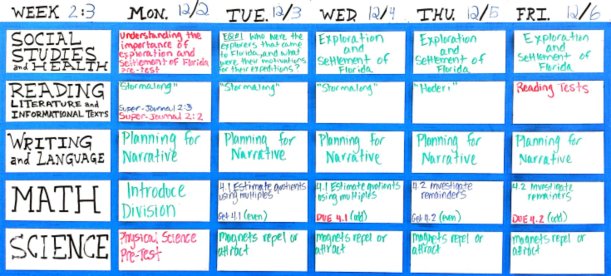 WEEK 2:3 MON. 12/2 TUE. 12/3 WED 12/4 THU. 12/5 FRI. 12/6
SOCIAL STUDIES and HEALTH
Understanding the importance of exploration and Settlement of Florida Pre-test
EQ#1 Who were the explorers that came to Florida, and what were their motivations for their expeditions?
Exploration and Settlement of Florida
Exploration and Settlement of Florida
Exploration and Settlement of Florida
READING LITERATURE and INFORMATIONAL TEXTS
"Stormalong"
Super-Journal 2:3
Super-Journal 2:2
"Stormalong"
"Stormalong"
Reading Tests
WRITING and LANGUAGE
Planning for Narrative
Planning for Narrative
Planning for Narrative
Planning for Narrative
Planning for Narrative
MATH
Introduce Division
4.1 Estimate quotients using multiples
4.1 (even)
4.1 Estimate quotients using multiples
DUE 4.1 (odd)
4.2 Investigate remainders
4.2 (even)
4.2 Investigate remainders
DUE 4.2 (odd)
SCIENCE
Physical Science Pre-Test
magnets repel or attract
magnets repel or attract
magnets repel or attract
magnets repel or attract